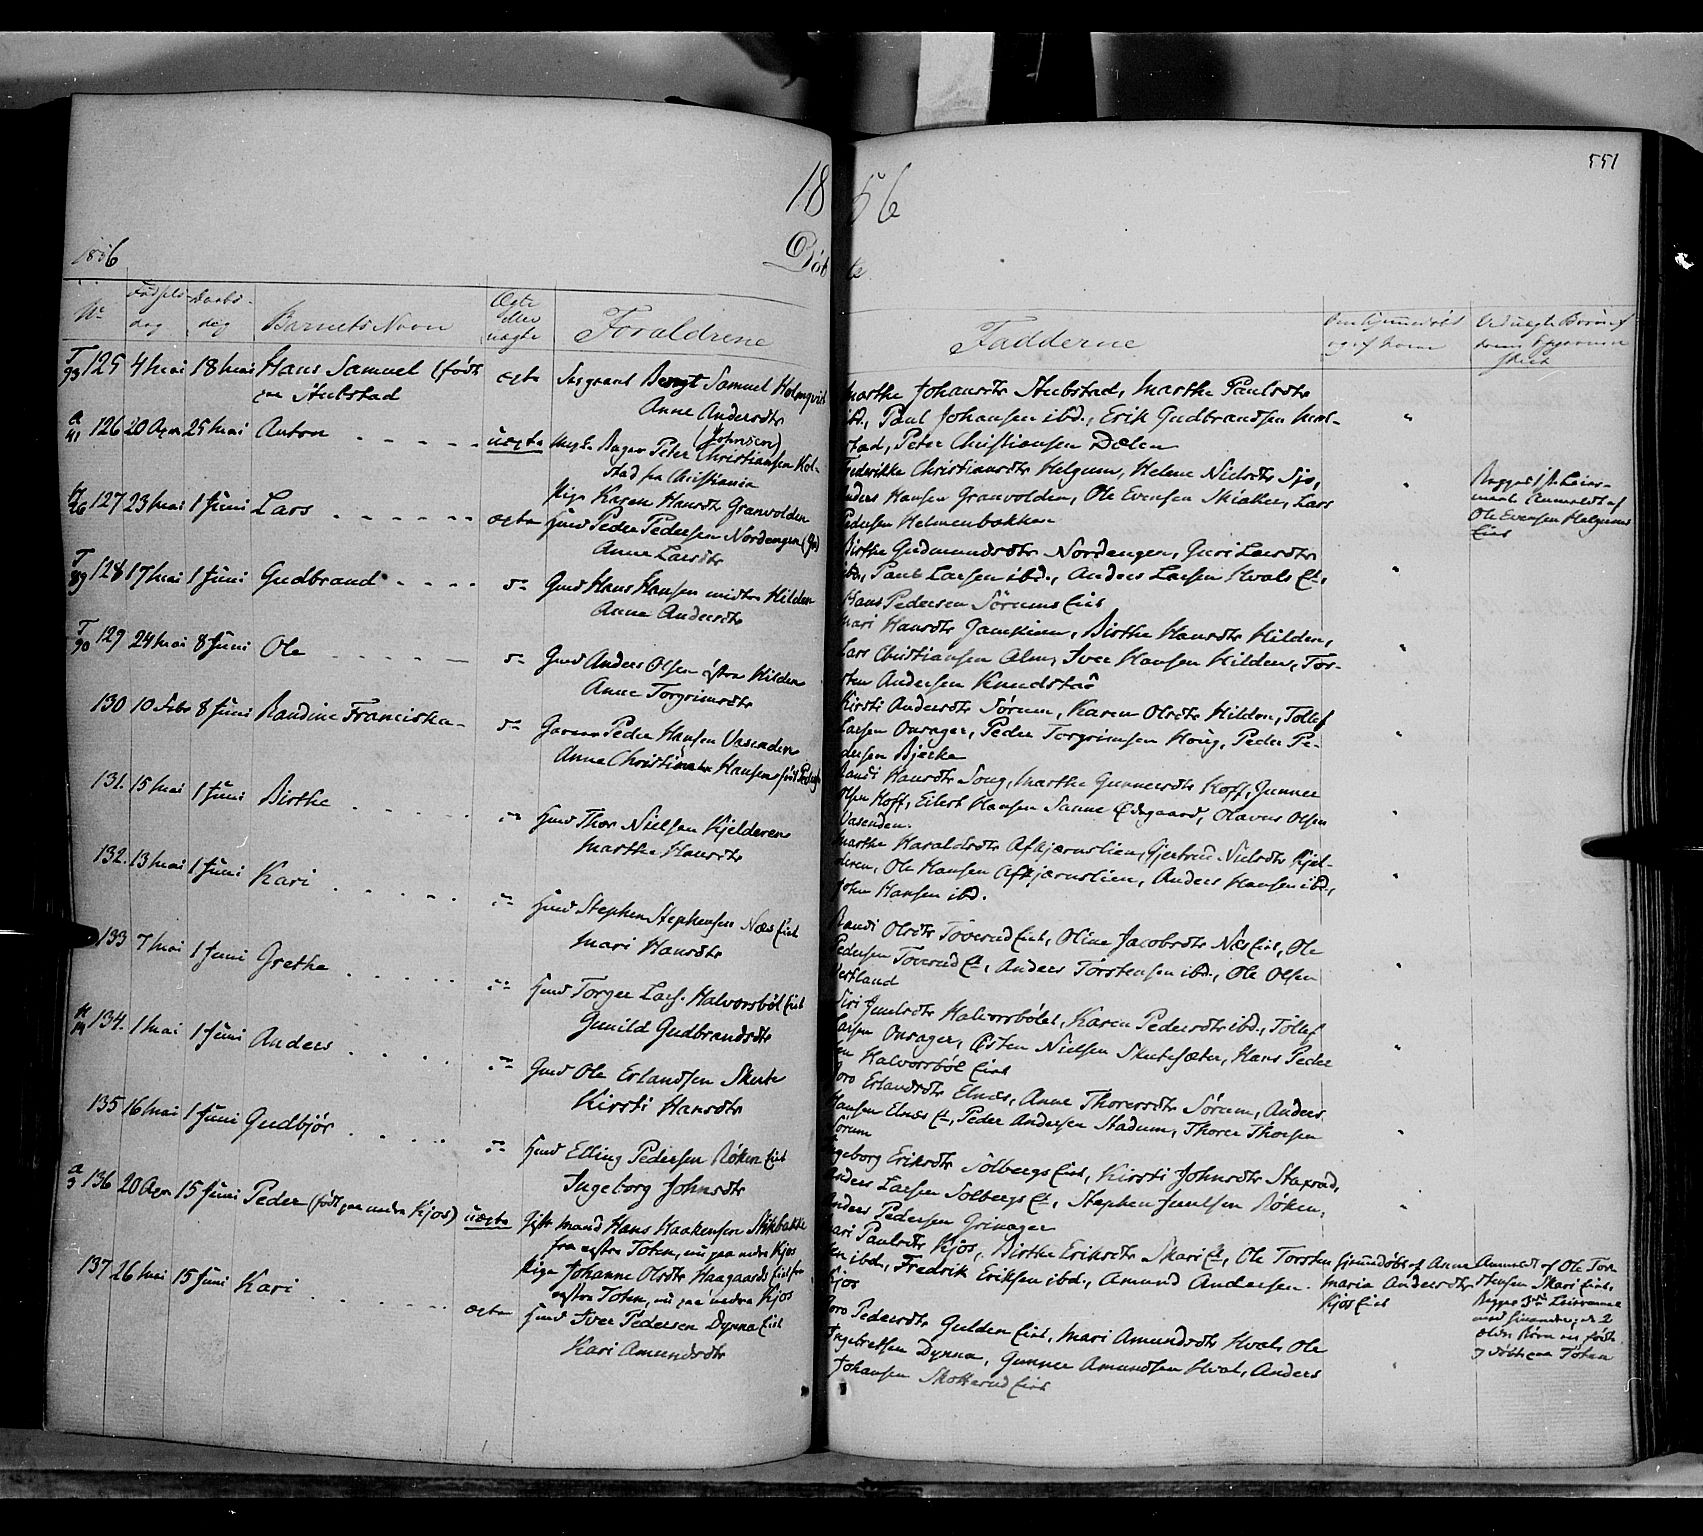 18 56
551
1856
Døbte
No
Fødselsdag
Daabsdag
Barnets Navn
Ægte eller uægte
Forældrene
Fadderne
T 93 125 4 Mai 18 Mai Hans Samuel (født
paa Stubstad
ægte Sergeant Bengt Samuel Holmqvist
Anne Andersdtr
Marthe Johansdtr Stubstad, Marthe Paulsdtr
ibd., Paul Johansen ibd., Erik Gudbrandsen
Peter Christiansen Dælen
a 41 126 20 Apr 25 Mai Anton
uægte Bager Peter Christiansen (Johnsen) Hol-
stad fra Christiania
Pige Karen Hansdtr Granvolden
Frederikke Christiansdtr Helgum, Helene Nielsdtr Sjo,
Anders Hansen Granvolden, Ole Evensen Skiaker, Lars
Pedersen Helmenbakken
Ole Evensen Helgums
Eie
127 23 Mai 1 Juni Lars
ægte Gmd Peder Pedersen Nordengen
Anne Larsdtr
Birthe Gudmundsdtr Nordengen, Guri Larsdtr
ibd., Paul Larsen ibd., Anders Larsen Hvals E.,
Hans Pedersen Sørums Eie
T 89 128 17 Mai 1 Juni Gudbrand
Gmd Hans Hansen midtre Hilden
Anne Andersdtr
Mari Hansdtr Birthe Hansdtr Hilden,
Lars Christiansen Alm, Iver Hansen Hilden, Tor-
sten Andersen Knudstad
T 90 129 24 Mai 8 Juni Ole
Gmd Anders Olsen østre Hilden
Anne Torgrimsdtr
Kirsti Andersdtr Sørum, Karen Olsdtr Hilden, Tollef
Larsen Onsager, Peder Torgrimsen Houg, Peder Pe-
dersen Bjerke
130 10 Febr 8 Juni Randine Franciska
Peder Hansen Vasenden
Anne Christine Hansen
Randi Hansdtr Song, Marthe Gunnersdtr Hoff, Gunner
Olsen Hoff, Eilert Hansen Sanne Ødegaard, Olavus Olsen
Vasenden.
131. 15 Mai 1 Juni Birthe
Gmd Thor Nielsen Kjelderen
Marthe Hansdtr
Marthe Haraldsdtr Askjærnslien, Gjertrud Nielsdtr Kjel-
deren, Ole Hansen Askjærnslien, Anders Hansen ibd.,
John Hansen ibd.
132. 13 Mai 1 Juni Kari
Gmd Stephen Stephensen Næs Eie
Mari Hansdtr
Randi Olsdtr Toverud Eie, Oline Jacobsdtr Næs Eie, Ole
Pedersen Toverud E., Anders Torstensen ibd., Ole Olsen
Vestland
133 7 Mai 1 Juni Grethe
Gmd Torger Lars. Halvorsbøl Eie
Gunild Gudbrandsdtr
Siri Juulsdtr Halvorsbølet, Karen Pedersdtr ibd., Tollef
Larsen Onsager, Østen Nielsen Skutesæter, Hans Peder
sen Halvorsbøl Eie
134. 1 Mai 1 Juni Anders
Gmd Ole Erlandsen Skute
Kirsti Hansdtr
Goro Erlandsdtr Elnæs, Anne Thorersdtr Sørum, Anders
Hansen Elnæs E., Peder Andersen Stadum, Thorer Thorsen
Sørum
135 16 Mai 1 Juni Gudbjør
Gmd Elling Pedersen Røken Eie
Ingeborg Johnsdtr
Ingeborg Eriksdtr Solbergs Eie, Kirsti Johnsdtr Staxrud,
Anders Larsen Solbergs E., Stephen Juulsen Røken,
Anders Pedersen Grinager
a 3 136 20 Apr 15 Juni Peder (født paa nedre Kjos)
uægte Gift Mand Hans Haakensen Skikbakke
fra østre Toten, nu paa nedre Kjos
Pige Johanne Olsdtr Haagaards Eie fra
østre Toten, nu paa nedre Kjos
Mari Paulsdtr Kjos, Birthe Eriksdtr Skari E., Ole Torsten
sen ibd., Fredrik Eriksen ibd., Amund Andersen
Kjos
Hjemmdøbt af Anne
Maria Andersdtr
Kjos Eie
Anmeldt af Ole Tor-
stensen Skari Eie,
Begges 3die Leiermaal
med hinanden, de 2
ældre Børn ere fødte
og døbte paa Toten
137 26 Mai 15 Juni Kari
ægte Gmd Iver Pedersen Dynna Eie
Kari Amundsdtr
Goro Pedersdtr Gulden Eie, Mari Amundsdtr Hval, Ole
Ingebretsen Dynna, Gunner Amundsen Hval, Anders
Johansen Skotterud Eie